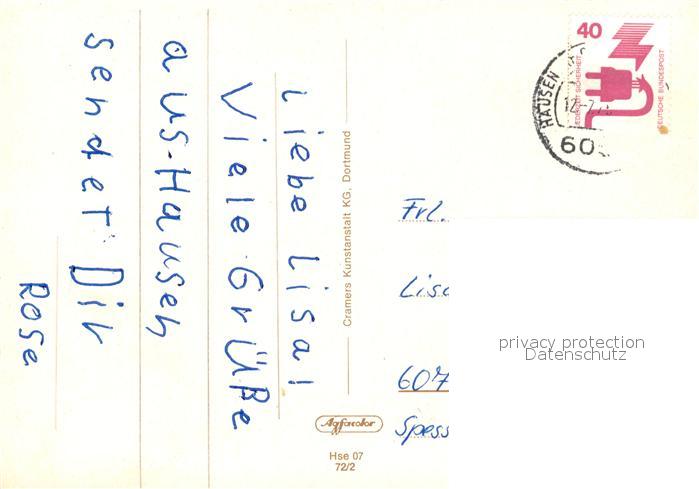 Liebe Lisa!
Viele Grüße
aus Hausen
sendet Dir
Rose
Cramers Kunstanstalt KG, Dortmund
Agfacolor
Hse 07
72/2
40
JEDERZEIT SICHERHEIT
DEUTSCHE BUNDESPOST
HAUSEN
Frl.
607
Spess
privacy protection
Datenschutz